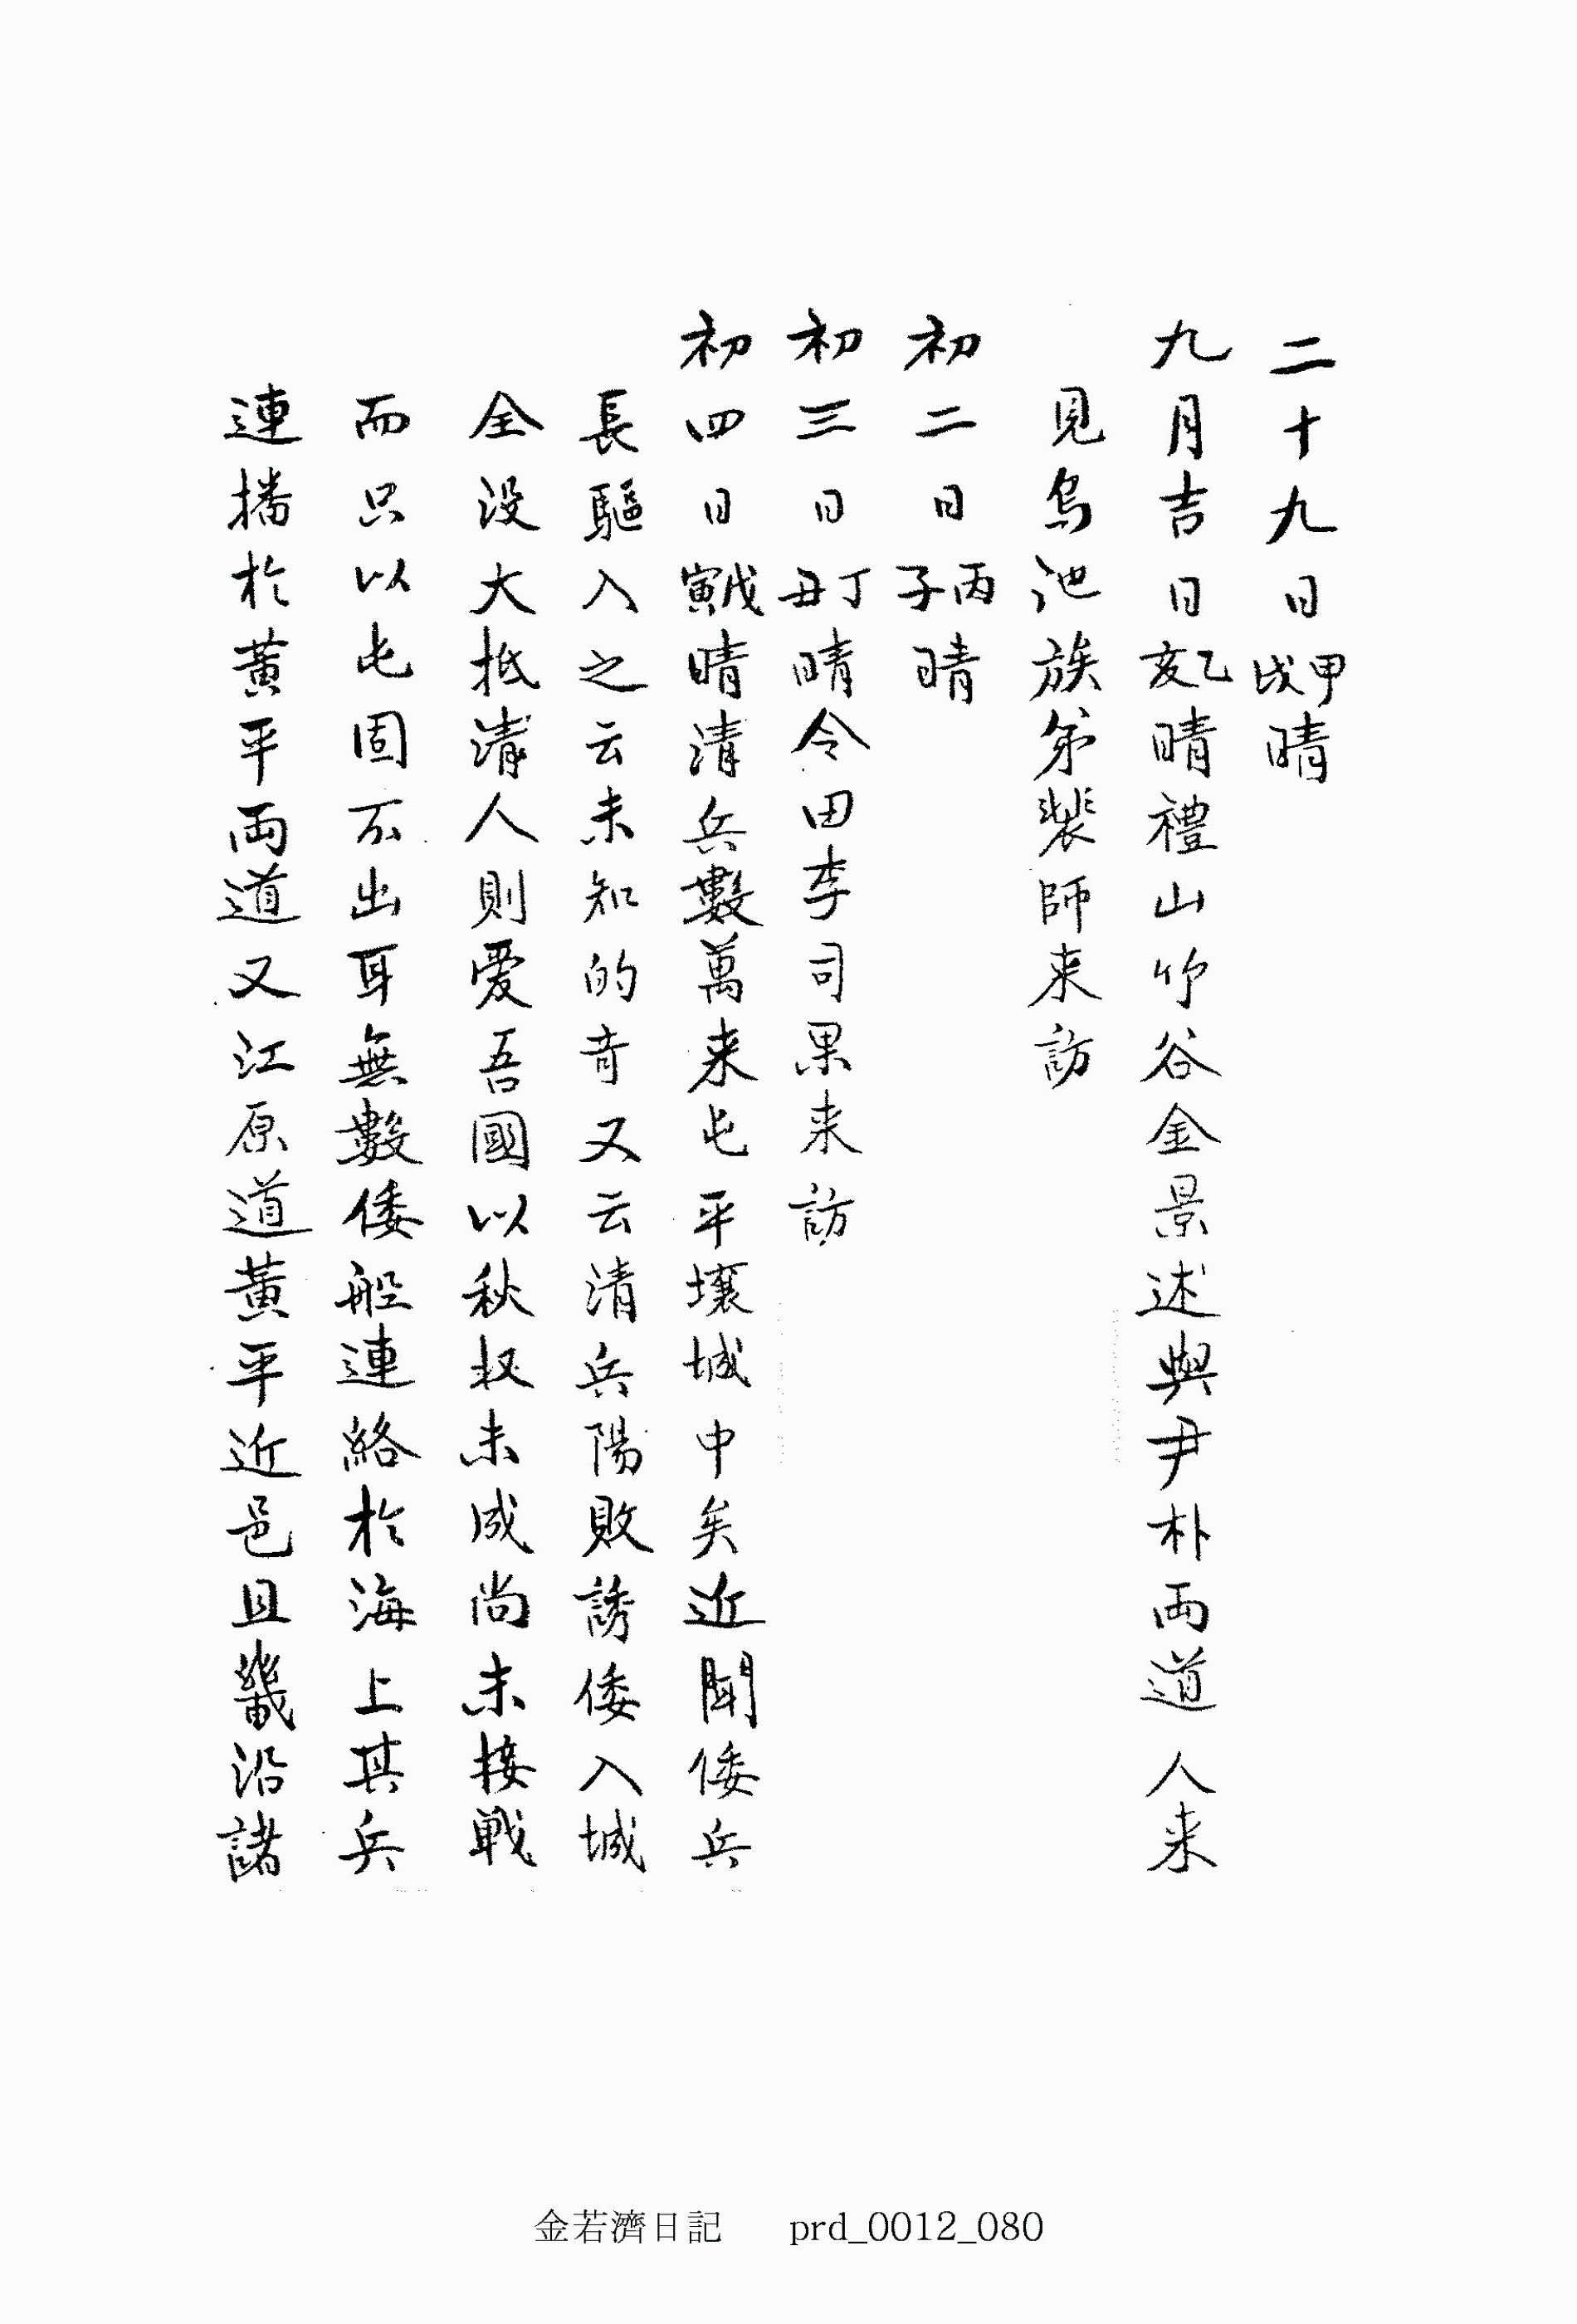 二十九日甲戌晴
九月吉日乙亥晴禮山竹谷金景述與尹朴両道人来
見烏池族弟裴師来訪
初二日丙子晴
初三日丁丑晴令田李司果来訪
初四日戊寅晴清兵數萬来屯平壤城中矣近聞倭兵
長驅入之云未知的竒又云清兵陽敗誘倭入城
全没大抵清人則愛吾國以秋収未成尚未接戦
而只以屯固不出耳無數倭船連絡於海上其兵
連播於黃平両道又江原道黃平近邑且畿沿諸
金若濟日記 prd_0012_080